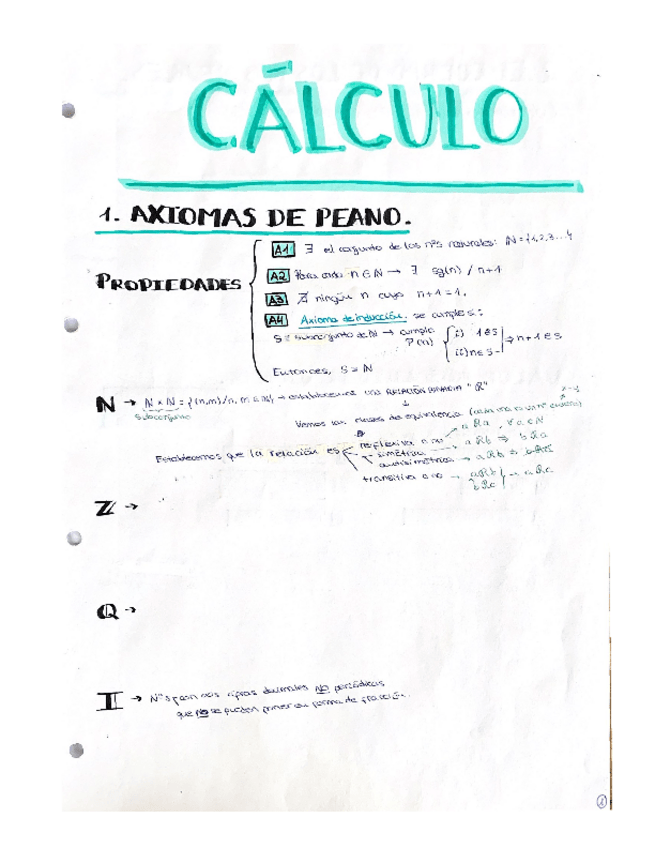 CÁLCULO
1. AXIOMAS DE PEANO.
PROPIEDADES
A1 ∃ el conjunto de los nºs naturales: ℕ={1,2,3...}
A2 Para cada n∈ℕ → ∃ sg(n) / n+1
A3 ∄ ningún n cuyo n+1=1.
A4 Axioma de inducción. se cumple:
S = subconjunto de ℕ → cumple P(n) { i) 1∈S ii) n∈S } ⇒ n+1∈S
Entonces, S = ℕ
ℕ → ℕ×ℕ = {(n,m)/n, m∈ℕ} → establecemos una RELACIÓN BINARIA "R"
Subconjunto
Vemos las clases de equivalencia
Establecemos que la relación es
reflexiva o no → aRa, ∀a∈ℕ
simétrica → aRb ⇒ bRa
antisimétrica → aRb ⇒
transitiva o no → aRb
bRc } → aRc
ℤ →
ℚ →
𝕀 → Nºs con cifras decimales NO periódicas
que NO se pueden poner en forma de fracción.
1